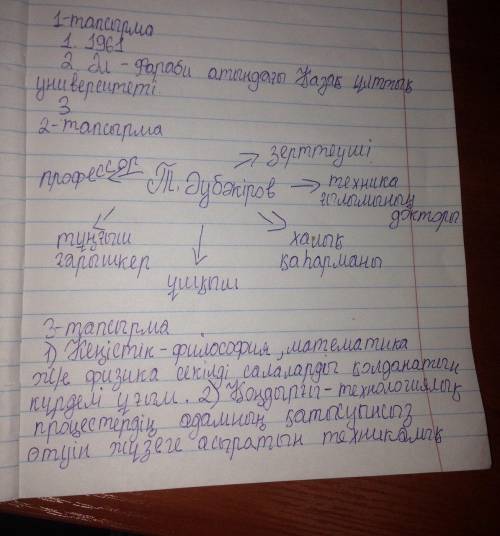 1-тапсырма
1. 1961
2. Әл - Фараби атындағы Қазақ ұлттық
университеті.
3
2-тапсырма
зерттеуші
профессор Т. Әубәкіров техника
ғылымының
докторы
тұңғыш халық
ғарышкер қаһарманы
ұшқыш
3-тапсырма
1) Кеңістік - философия, математика
және физика секілді салаларды қолданатын
күрделі ұғым. 2) Қондырғы - технологиялық
процестердің адамның қатысуынсыз
өтуін жүзеге асыратын техникалық